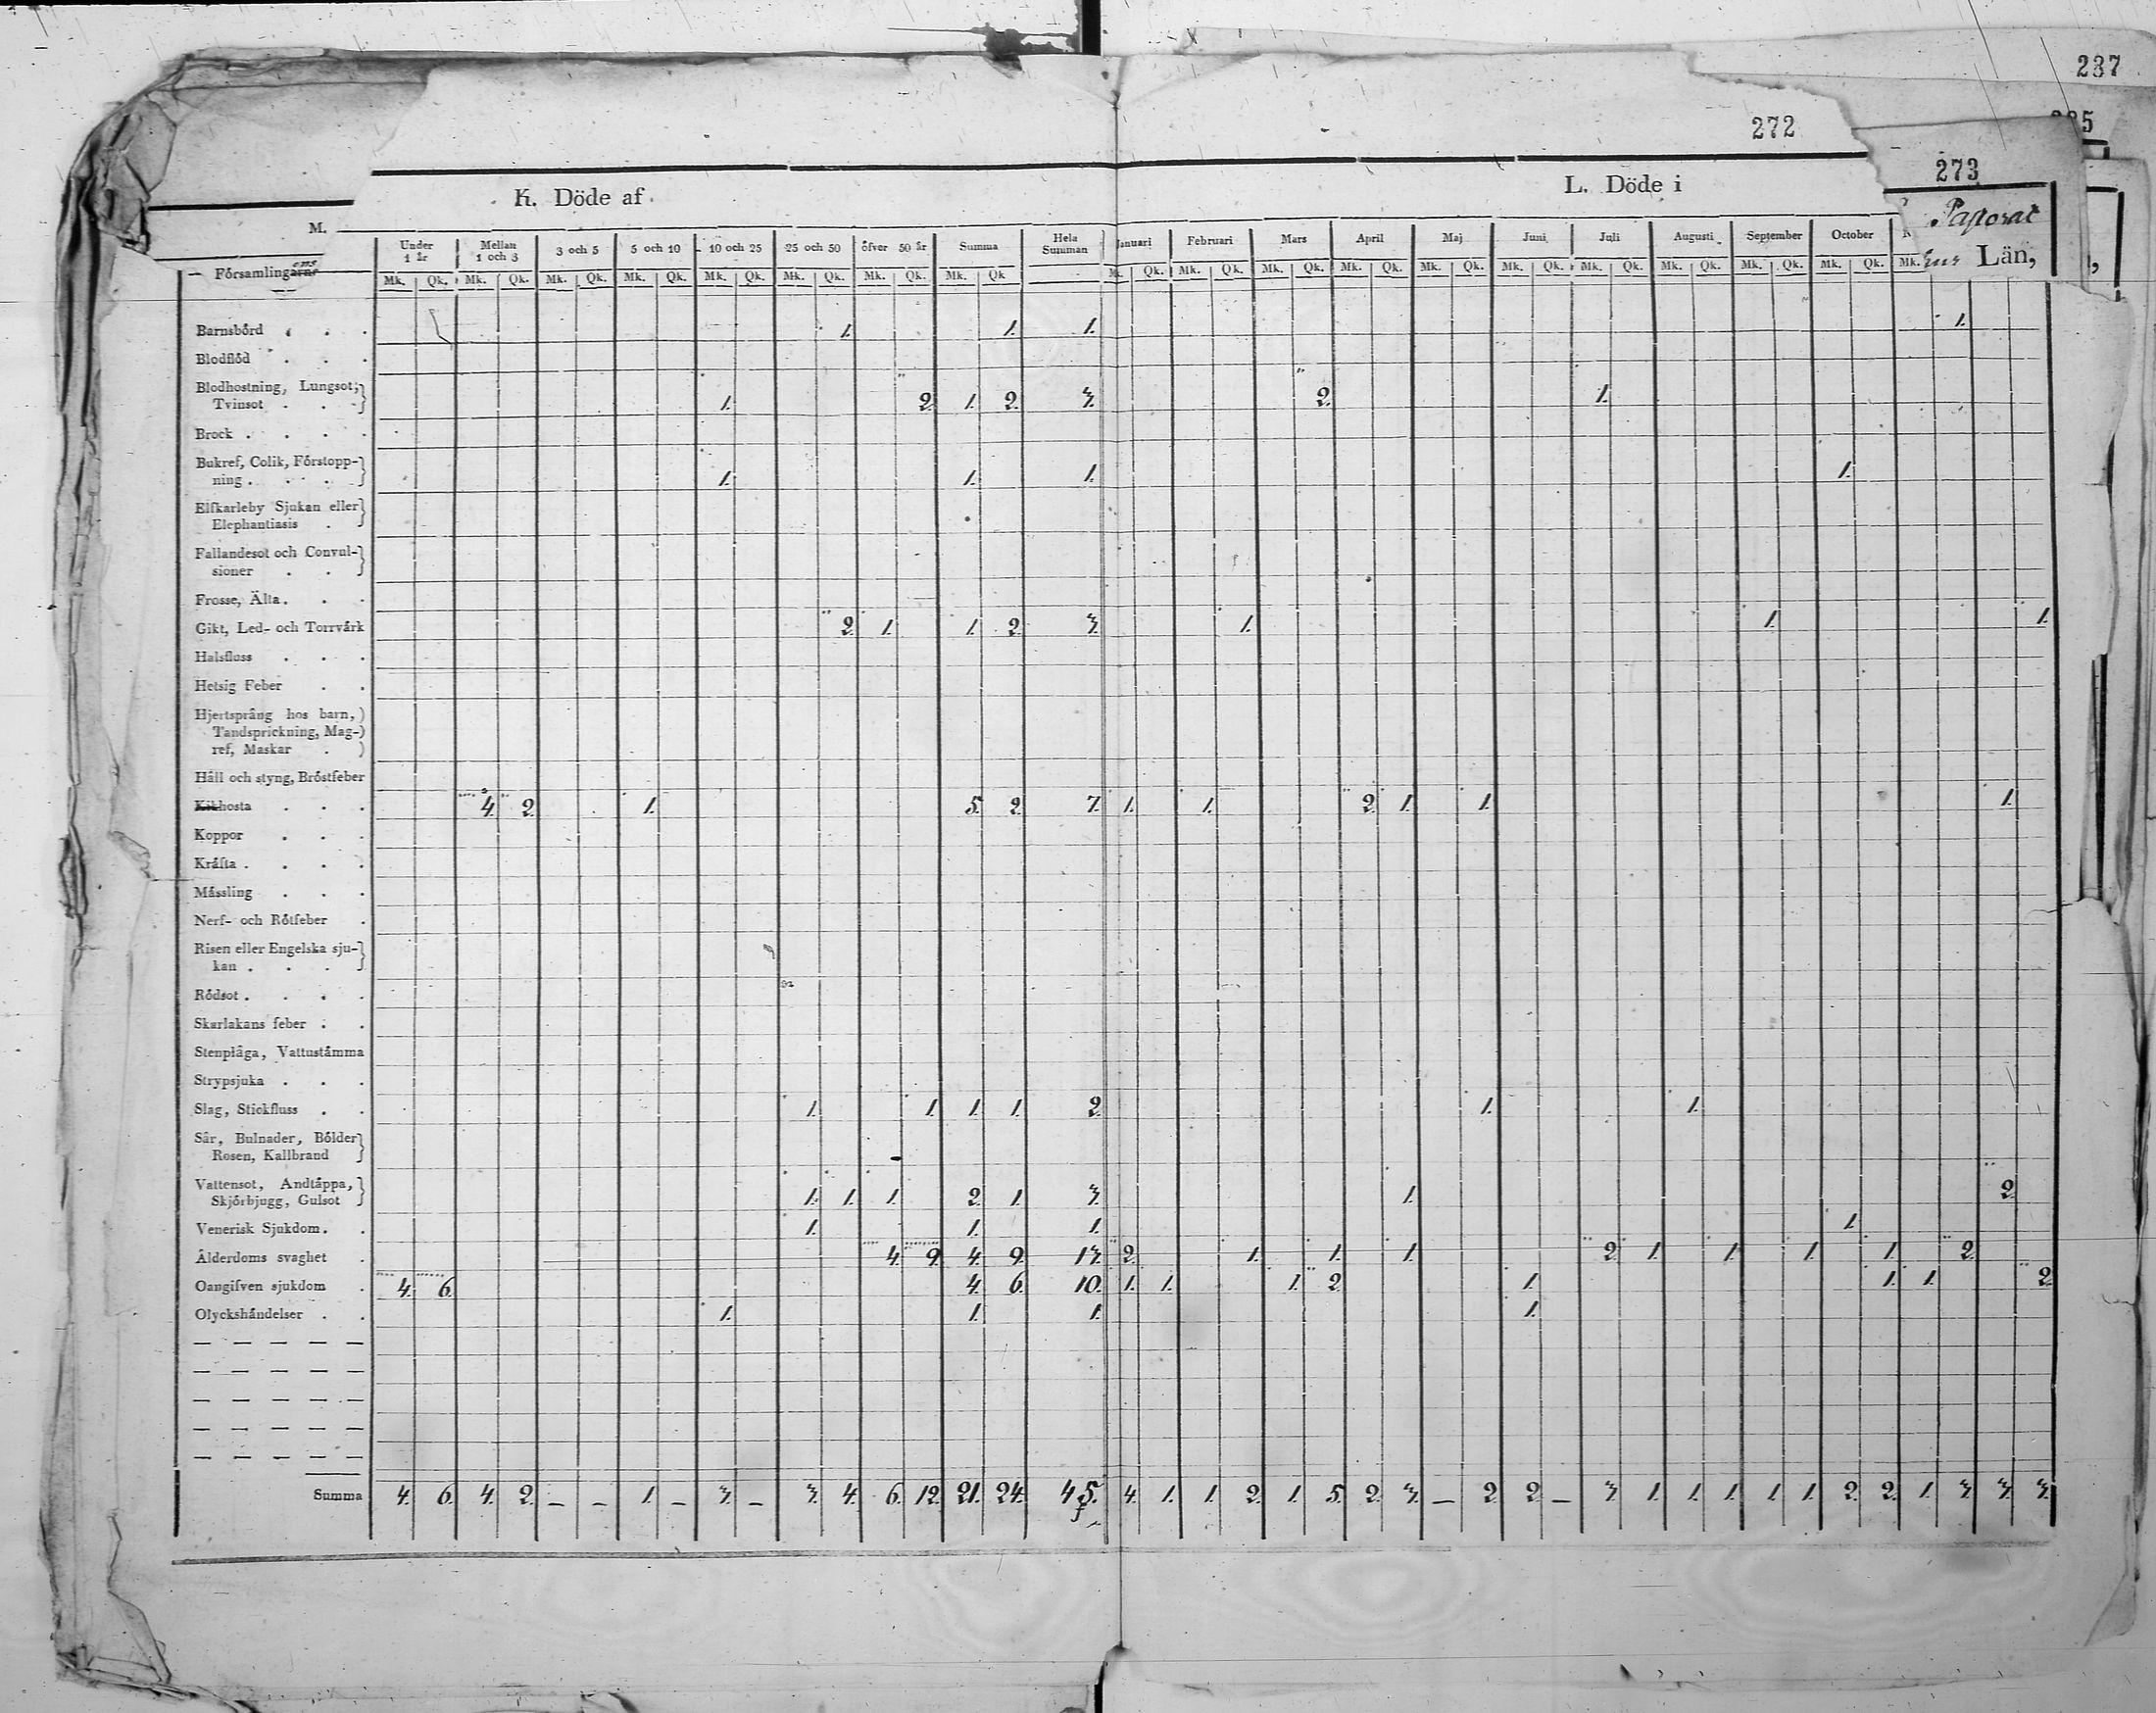 287
272
273
K. Döde af
L. Döde i
Pastorat
Län,
M.
Under 1 år Mellan 1 och 3 3 och 5 5 och 10 10 och 25 25 och 50 öfver 50 år Summa Hela Summan Januari Februari Mars April Maj Juni Juli Augusti September October
Församlingarne
Mk. Qk. Mk. Qk. Mk. Qk. Mk. Qk. Mk. Qk. Mk. Qk. Mk. Qk. Mk. Qk Mk. Qk. Mk. Qk. Mk. Qk. Mk. Qk. Mk. Qk. Mk. Qk. Mk. Qk. Mk. Qk. Mk. Qk. Mk. Qk. Mk.
Barnsbörd 1. 1. 1. 1.
Blodflöd
Blodhostning, Lungsot;
Tvinsot 1. 2. 1. 2. 3. 2. 1.
Brock
Bukref, Colik, Förstopp-
ning 1. 1. 1. 1.
Elfkarleby Sjukan eller
Elephantiasis
Fallandesot och Convul-
sioner
Frosse, Älta
Gikt, Led- och Torrvärk 2. 1. 1. 2. 3. 1. 1. 1.
Halsfluss
Hetsig Feber
Hjertsprång hos barn,
Tandsprickning, Mag-
ref, Maskar
Håll och styng, Bröstfeber
Kikhosta 4. 2. 1. 5. 2. 7. 1. 1. 2. 1. 1. 1.
Koppor
Kräfta
Mässling
Nerf- och Rötfeber
Risen eller Engelska sju-
kan
Rödsot
Skarlakans feber
Stenplåga, Vattustämma
Strypsjuka
Slag, Stickfluss 1. 1. 1. 1. 2. 1. 1.
Sår, Bulnader, Bölder
Rosen, Kallbrand
Vattensot, Andtäppa,
Skjörbjugg, Gulsot 1. 1. 1. 2. 1. 3. 1. 2.
Venerisk Sjukdom 1. 1. 1. 1.
Ålderdoms svaghet 4. 9. 4. 9. 13. 2. 1. 1. 1. 2. 1. 1. 1. 1. 2.
Oangifven sjukdom 4. 6. 4. 6. 10. 1. 1. 1. 2. 1. 1. 1. 2.
Olyckshändelser 1. 1. 1. 1.
Summa 4. 6. 4. 2. – – 1. – 3. – 3. 4. 6. 12. 21. 24. 45. 4. 1. 1. 2. 1. 5. 2. 3. – 2. 2. – 3. 1. 1. 1. 1. 1. 2. 2. 1. 3. 3. 3.